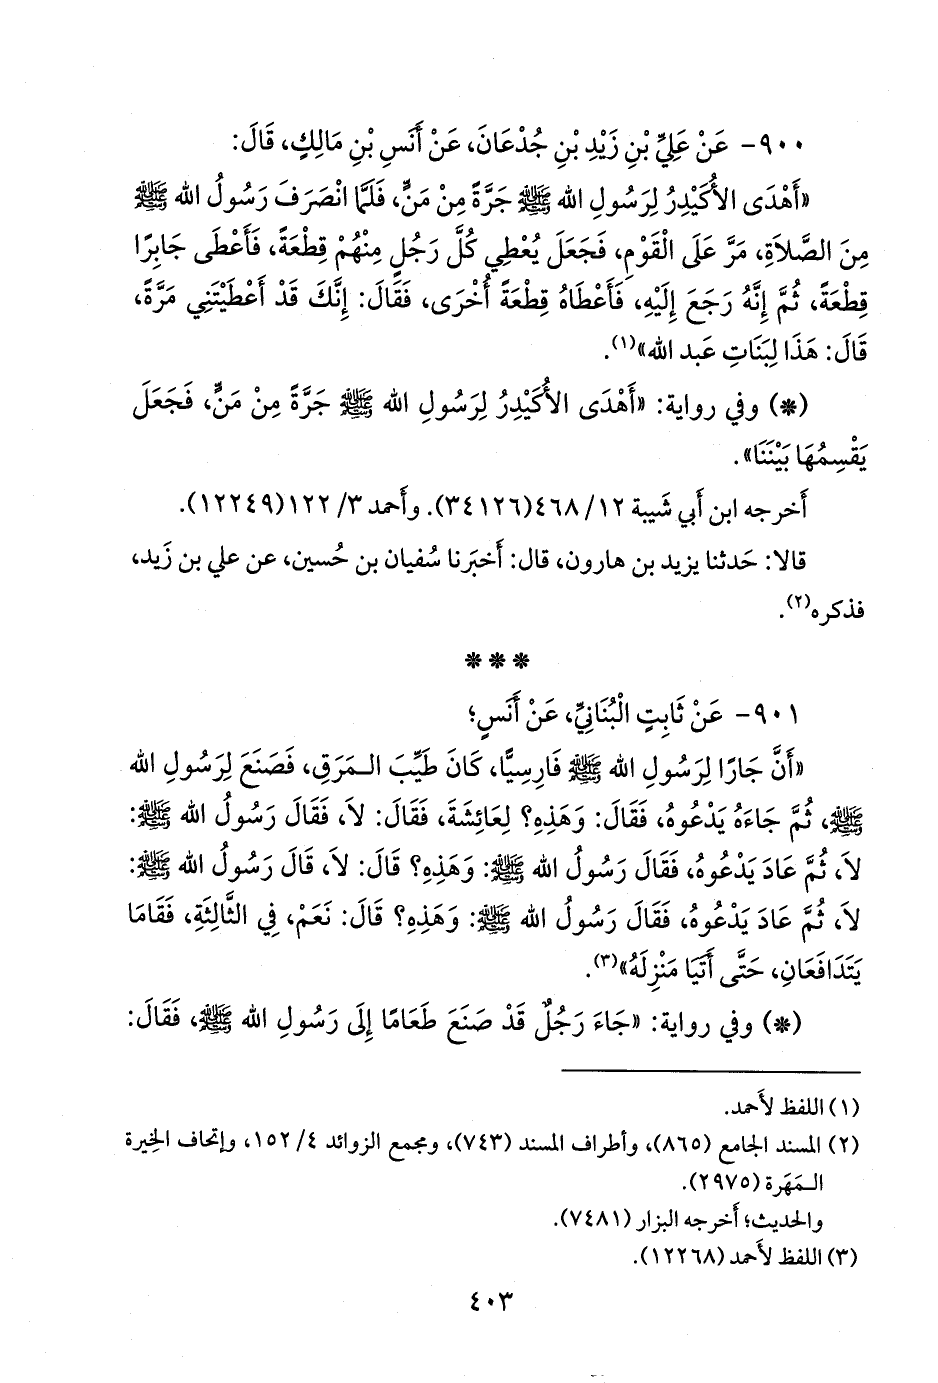 ٩٠٠- عَنْ عَلِيِّ بْنِ زَيْدِ بْنِ جُدْعَانَ، عَنْ أَنَسِ بْنِ مَالِكٍ، قَالَ:
«أَهْدَى الأُكَيْدِرُ لِرَسُولِ الله ﷺ جَرَّةً مِنْ مَنٍّ، فَلَمَّا انْصَرَفَ رَسُولُ الله ﷺ
مِنَ الصَّلاَةِ، مَرَّ عَلَى الْقَوْمِ، فَجَعَلَ يُعْطِي كُلَّ رَجُلٍ مِنْهُمْ قِطْعَةً، فَأَعْطَى جَابِرًا
قِطْعَةً، ثُمَّ إِنَّهُ رَجَعَ إِلَيْهِ، فَأَعْطَاهُ قِطْعَةً أُخْرَى، فَقَالَ: إِنَّكَ قَدْ أَعْطَيْتَنِي مَرَّةً،
قَالَ: هَذَا لِبَنَاتِ عَبد الله»(١).
(*) وفي رواية: «أَهْدَى الأُكَيْدِرُ لِرَسُولِ الله ﷺ جَرَّةً مِنْ مَنٍّ، فَجَعَلَ
يَقْسِمُهَا بَيْنَنَا».
أَخرجه ابن أَبي شَيبة ١٢/ ٤٦٨(٣٤١٢٦). وأَحمد ٣/ ١٢٢(١٢٢٤٩).
قالا: حَدثنا يزيد بن هارون، قال: أَخبَرنا سُفيان بن حُسين، عن علي بن زَيد،
فذكره(٢).
* * *
٩٠١- عَنْ ثَابِتٍ الْبُنَانِيِّ، عَنْ أَنَسٍ؛
«أَنَّ جَارًا لِرَسُولِ الله ﷺ فَارِسِيًّا، كَانَ طَيِّبَ الـمَرَقِ، فَصَنَعَ لِرَسُولِ الله
ﷺ، ثُمَّ جَاءَهُ يَدْعُوهُ، فَقَالَ: وَهَذِهِ؟ لِعَائِشَةَ، فَقَالَ: لاَ، فَقَالَ رَسُولُ الله ﷺ:
لاَ، ثُمَّ عَادَ يَدْعُوهُ، فَقَالَ رَسُولُ الله ﷺ: وَهَذِهِ؟ قَالَ: لاَ، قَالَ رَسُولُ الله ﷺ:
لاَ، ثُمَّ عَادَ يَدْعُوهُ، فَقَالَ رَسُولُ الله ﷺ: وَهَذِهِ؟ قَالَ: نَعَمْ، فِي الثَّالِثَةِ، فَقَامَا
يَتَدَافَعَانِ، حَتَّى أَتَيَا مَنْزِلَهُ»(٣).
(*) وفي رواية: «جَاءَ رَجُلٌ قَدْ صَنَعَ طَعَامًا إِلَى رَسُولِ الله ﷺ، فَقَالَ:
(١) اللفظ لأَحمد.
(٢) المسند الجامع (٨٦٥)، وأطراف المسند (٧٤٣)، ومجمع الزوائد ٤/ ١٥٢، وإتحاف الخِيرة
الـمَهَرة (٢٩٧٥).
والحديث؛ أخرجه البزار (٧٤٨١).
(٣) اللفظ لأَحمد (١٢٢٦٨).
٤٠٣